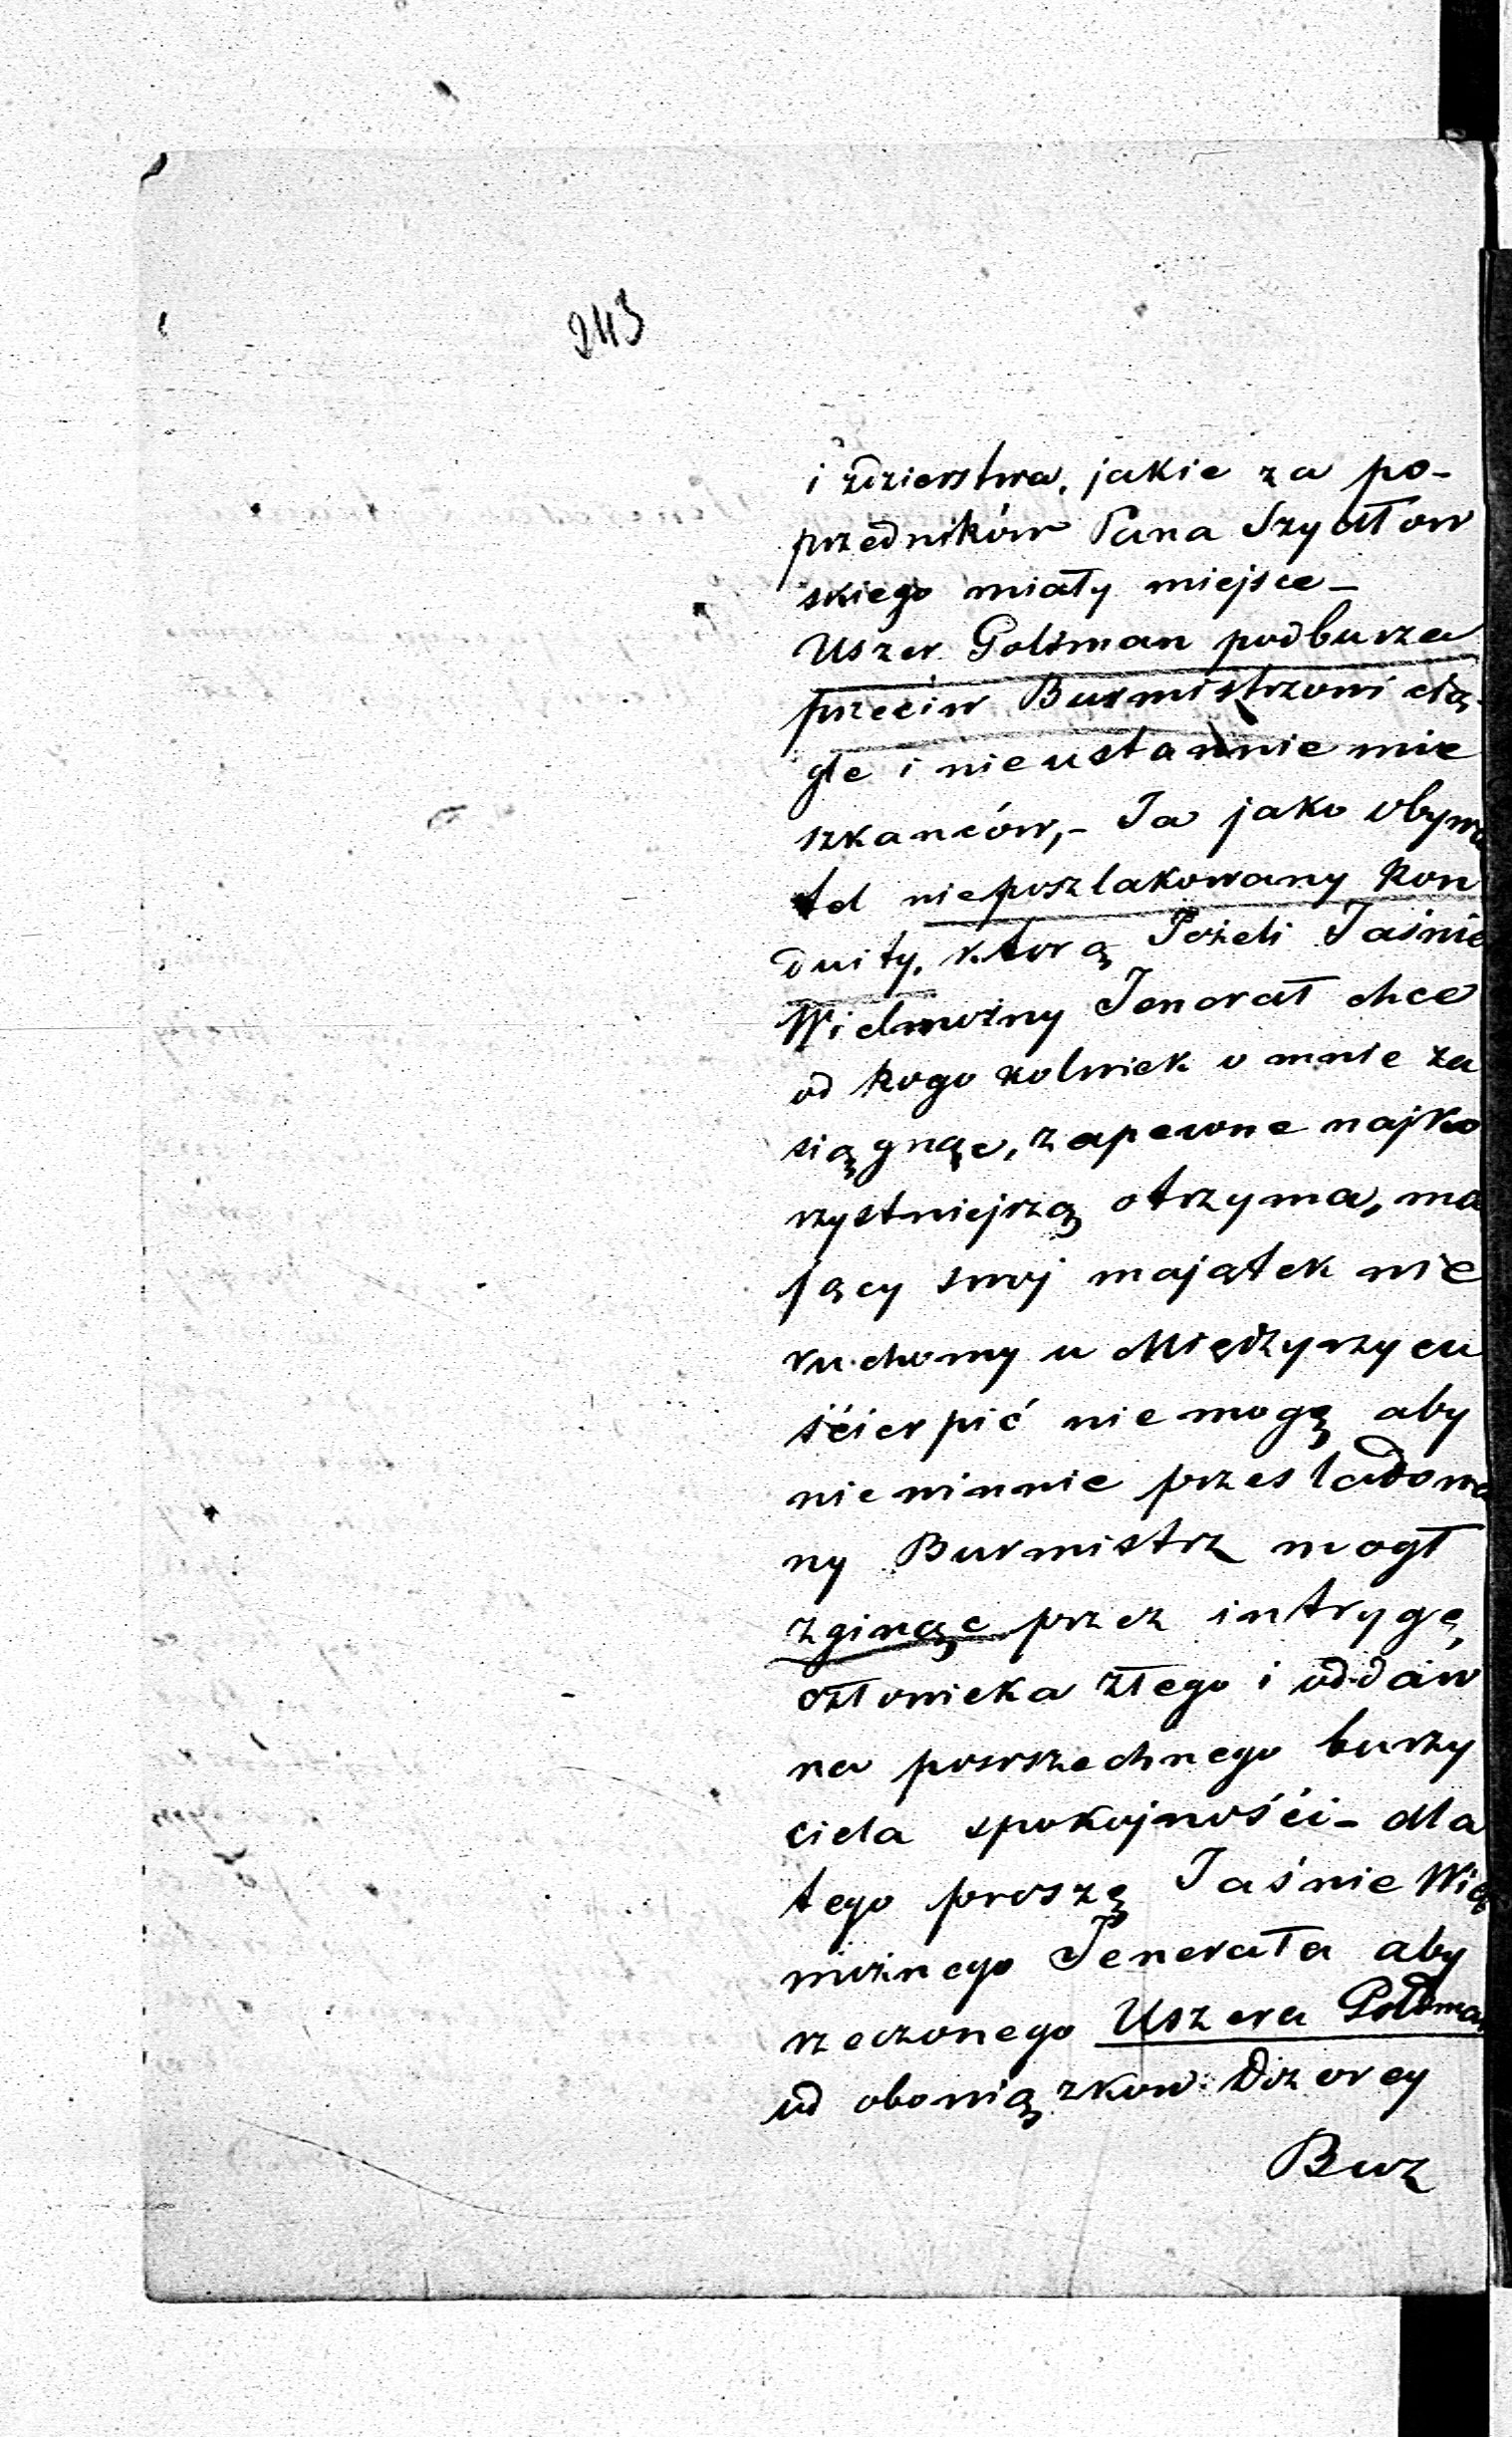 243
i zdzierstwa, jakie za po-
przedników Pana Szydłow
skiego miały miejsce -
Uszer Goldman podburza
przeciw Burmistrzowi cią-
gle i nieustannie mie
szkanców, - Ja jako obywa
tel nieposzlakowany kon
duity, ktorą Jeżeli Jaśnie
Wielmożny Jenerał chce
od kogo kolwiek o mnie za
siągnąc, zapewne najko
rzystniejszą otrzyma, ma
jący swoj majątek nie
ruchomy w Międzyrzycu
śćierpić niemogę aby
niewinnie przesladowa
ny Burmistrz mogł
zginąc przez intrygę
człowieka złego i oddaw
na powszechnego burzy
ciela spokojnośći - dla
tego proszę Jaśnie Wiel
możnego Jenerała aby
rzeczonego Uszera Goldman
od obowiązkow Dozorcy
Buz